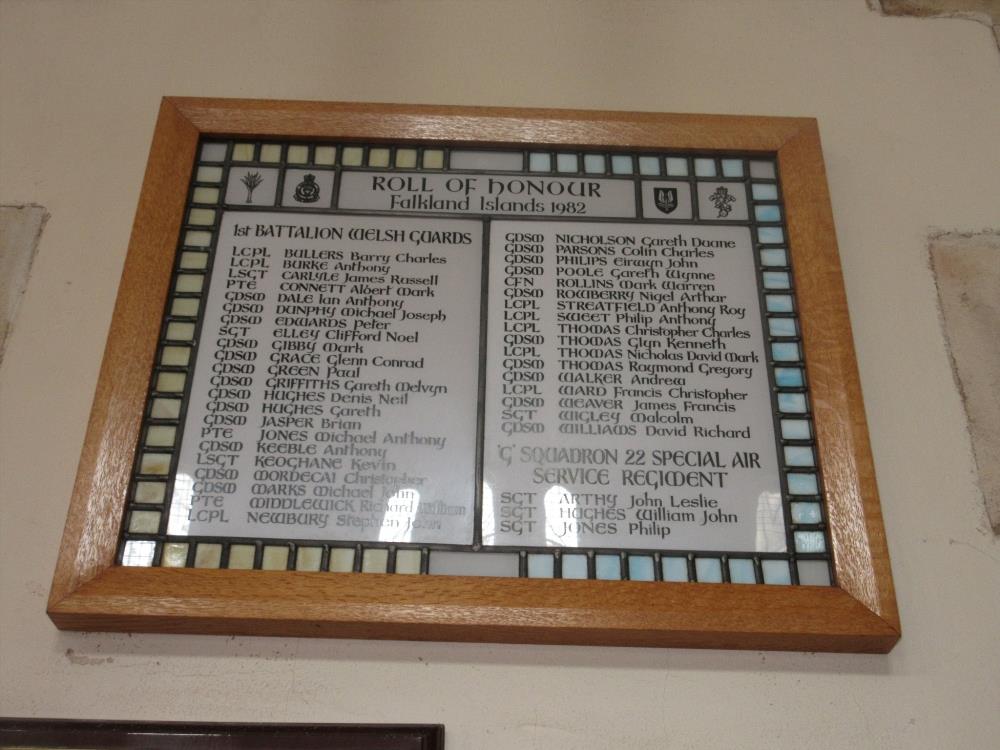 ROLL OF HONOUR
Falkland Islands 1982
1st BATTALION WELSH GUARDS
LCPL BULLERS Barry Charles
LCPL BURKE Anthony
LSGT CARLYLE James Russell
PTE CONNETT Albert Mark
GDSM DALE Ian Anthony
GDSM DUNPHY Michael Joseph
GDSM EDWARDS Peter
SGT ELLEY Clifford Noel
GDSM GIBBY Mark
GDSM GRACE Glenn Conrad
GDSM GREEN Paul
GDSM GRIFFITHS Gareth Melvyn
GDSM HUGHES Denis Neil
GDSM HUGHES Gareth
GDSM JASPER Brian
PTE JONES Michael Anthony
GDSM KEEBLE Anthony
LSGT KEOGHANE Kevin
GDSM MORDECAI Christopher
GDSM MARKS Michael John
PTE MIDDLEWICK Richard William
LCPL NEWBURY Stephen John
GDSM NICHOLSON Gareth Duane
GDSM PARSONS Colin Charles
GDSM PHILIPS Eirwyn John
GDSM POOLE Gareth Wynne
CFN ROLLINS Mark Warren
GDSM ROWBERRY Nigel Arthur
LCPL STREATFIELD Anthony Roy
LCPL SWEET Philip Anthony
LCPL THOMAS Christopher Charles
GDSM THOMAS Glyn Kenneth
LCPL THOMAS Nicholas David Mark
GDSM THOMAS Raymond Gregory
GDSM WALKER Andrew
LCPL WARD Francis Christopher
GDSM WEAVER James Francis
SGT WIGLEY Malcolm
GDSM WILLIAMS David Richard
'G' SQUADRON 22 SPECIAL AIR
SERVICE REGIMENT
SGT ARTHY John Leslie
SGT HUGHES William John
SGT JONES Philip